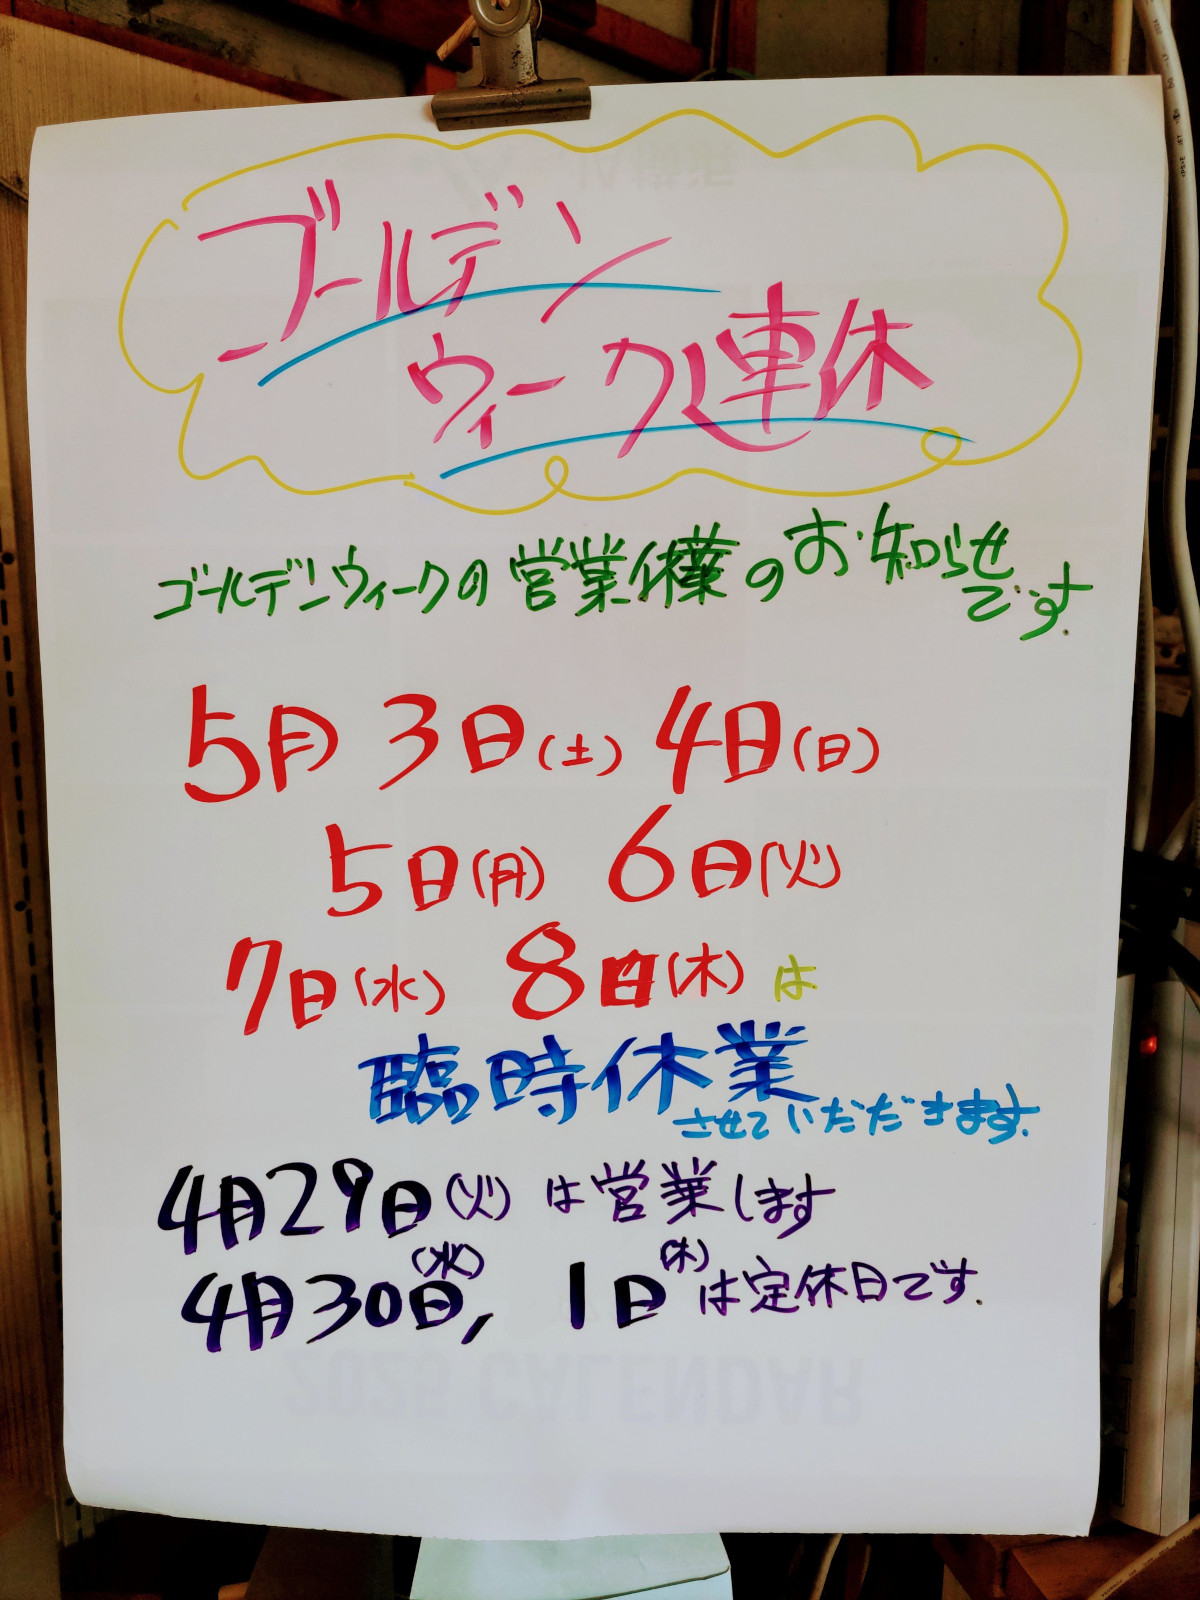 ゴールデン
ウィーク連休
ゴールデンウィークの営業休業のお知らせ
です.
5月 3日(土) 4日(日)
5日(月) 6日(火)
7日(水) 8日(木)は
臨時休業
させていただきます.
4月29日(火)は営業します
4月30日(水), 1日(木)は定休日です.
2025 CALENDAR